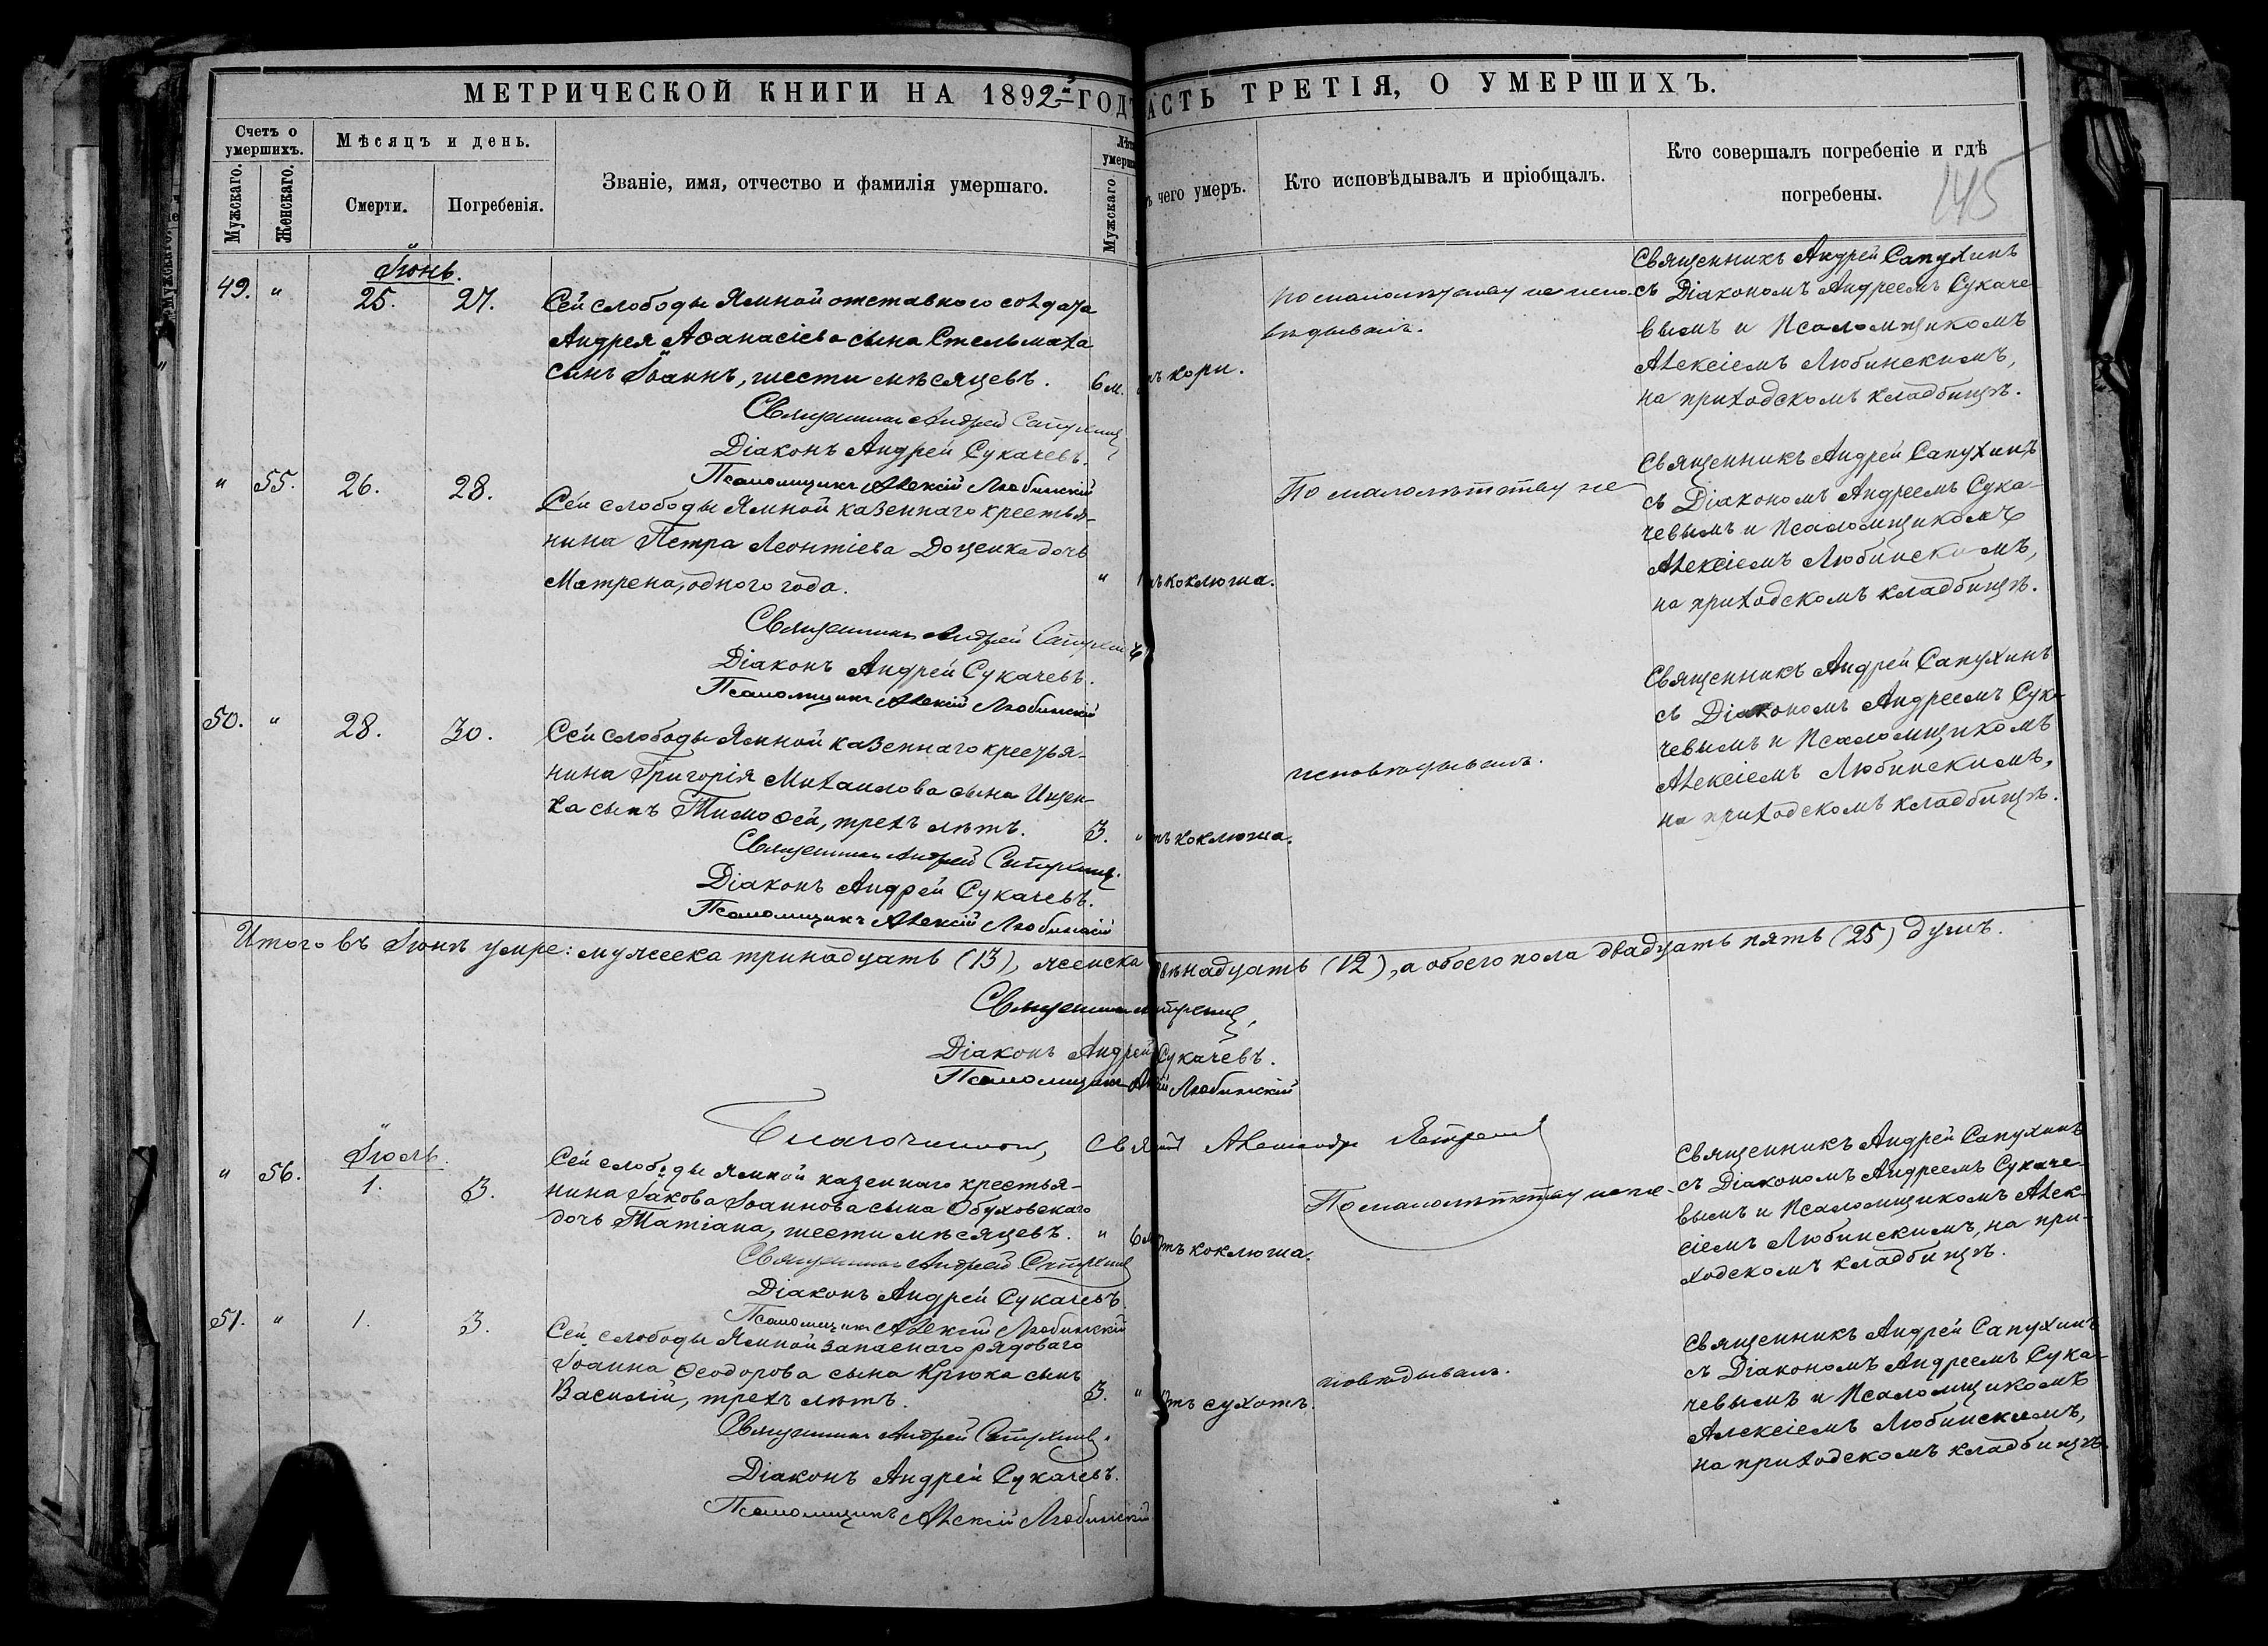 МЕТРИЧЕСКОЙ КНИГИ НА 1892й ГОДЪ
Счетъ о умершихъ.
Мужскаго.
Женскаго.
Мѣсяцъ и день.
Смерти.
Погребенія.
Званіе, имя, отчество и фамилія умершаго.
Мужскаго
Іюнь.
49. " 25. 27.
Сей слободы Ямной отставного солдата
Андрея Аѳанасіева сына Стельмаха
сынъ Іоаннъ, шести мѣсяцевъ. 6 м.
Священникъ Андрей Сапухинъ
Діаконъ Андрей Сукачевъ.
Псаломщикъ Алексій Любинскій
" 55. 26. 28.
Сей слободы Ямной казеннаго крестья-
нина Петра Леонтіева Доценка дочь
Матрена, одного года. "
Священникъ Андрей Сапухинъ
Діаконъ Андрей Сукачевъ.
Псаломщикъ Алексій Любинскій
50. " 28. 30.
Сей слободы Ямной казеннаго крестья-
нина Григорія Михаилова сына Ищен-
ка сынъ Тимоѳей, трехъ лѣтъ. 3. "
Священникъ Андрей Сапухинъ
Діаконъ Андрей Сукачевъ.
Псаломщикъ Алексій Любинскій
Итого въ Іюнѣ умре: мужеска тринадцать (13), женска
Священникъ
Діаконъ Андрей
Псаломщикъ
Благочинный, Свящ
Іюль.
" 56. 1. 3.
Сей слободы Ямной казеннаго крестья-
нина Іакова Іоаннова сына Обуховскаго
дочь Татіана, шести мѣсяцевъ. " 6 м
Священникъ Андрей Сапухинъ
Діаконъ Андрей Сукачевъ.
Псаломщикъ Алексій Любинскій
51. " 1. 3.
Сей слободы Ямной запаснаго рядоваго
Іоанна Ѳеодорова сына Крюка сынъ
Василій, трехъ лѣтъ. 3. "
Священникъ Андрей Сапухинъ.
Діаконъ Андрей Сукачевъ.
Псаломщикъ Алексій Любинскій
АСТЬ ТРЕТІЯ, О УМЕРШИХЪ.
ъ чего умеръ.
Кто исповѣдывалъ и пріобщалъ.
Кто совершалъ погребеніе и гдѣ
погребены.
145
тъ кори.
По малолѣтству не испо-
вѣдыванъ.
Священникъ Андрей Сапухинъ
съ Діакономъ Андреемъ Сукаче
вымъ и Псаломщикомъ
Алексіемъ Любинскимъ,
на приходскомъ кладбищѣ.
тъ коклюша.
По малолѣтству не
Священникъ Андрей Сапухинъ
съ Діакономъ Андреемъ Сука-
чевымъ и Псаломщикомъ
Алексіемъ Любинскимъ,
на приходскомъ кладбищѣ.
тъ коклюша.
исповѣдыванъ.
Священникъ Андрей Сапухинъ
съ Діакономъ Андреемъ Сука-
чевымъ и Псаломщикомъ
Алексіемъ Любинскимъ,
на приходскомъ кладбищѣ.
двѣнадцать (12), а обоего пола двадцать пять (25) душъ.
Сукачевъ.
Любинскій
Александръ
тъ коклюша.
По малолѣтству не
Священникъ Андрей Сапухинъ
съ Діакономъ Андреемъ Сукаче-
вымъ и Псаломщикомъ Алек-
сіемъ Любинскимъ, на при-
ходскомъ кладбищѣ.
тъ сухотъ.
Священникъ Андрей Сапухинъ
съ Діакономъ Андреемъ Сука-
чевымъ и Псаломщикомъ
Алексіемъ Любинскимъ,
на приходскомъ кладбищѣ.